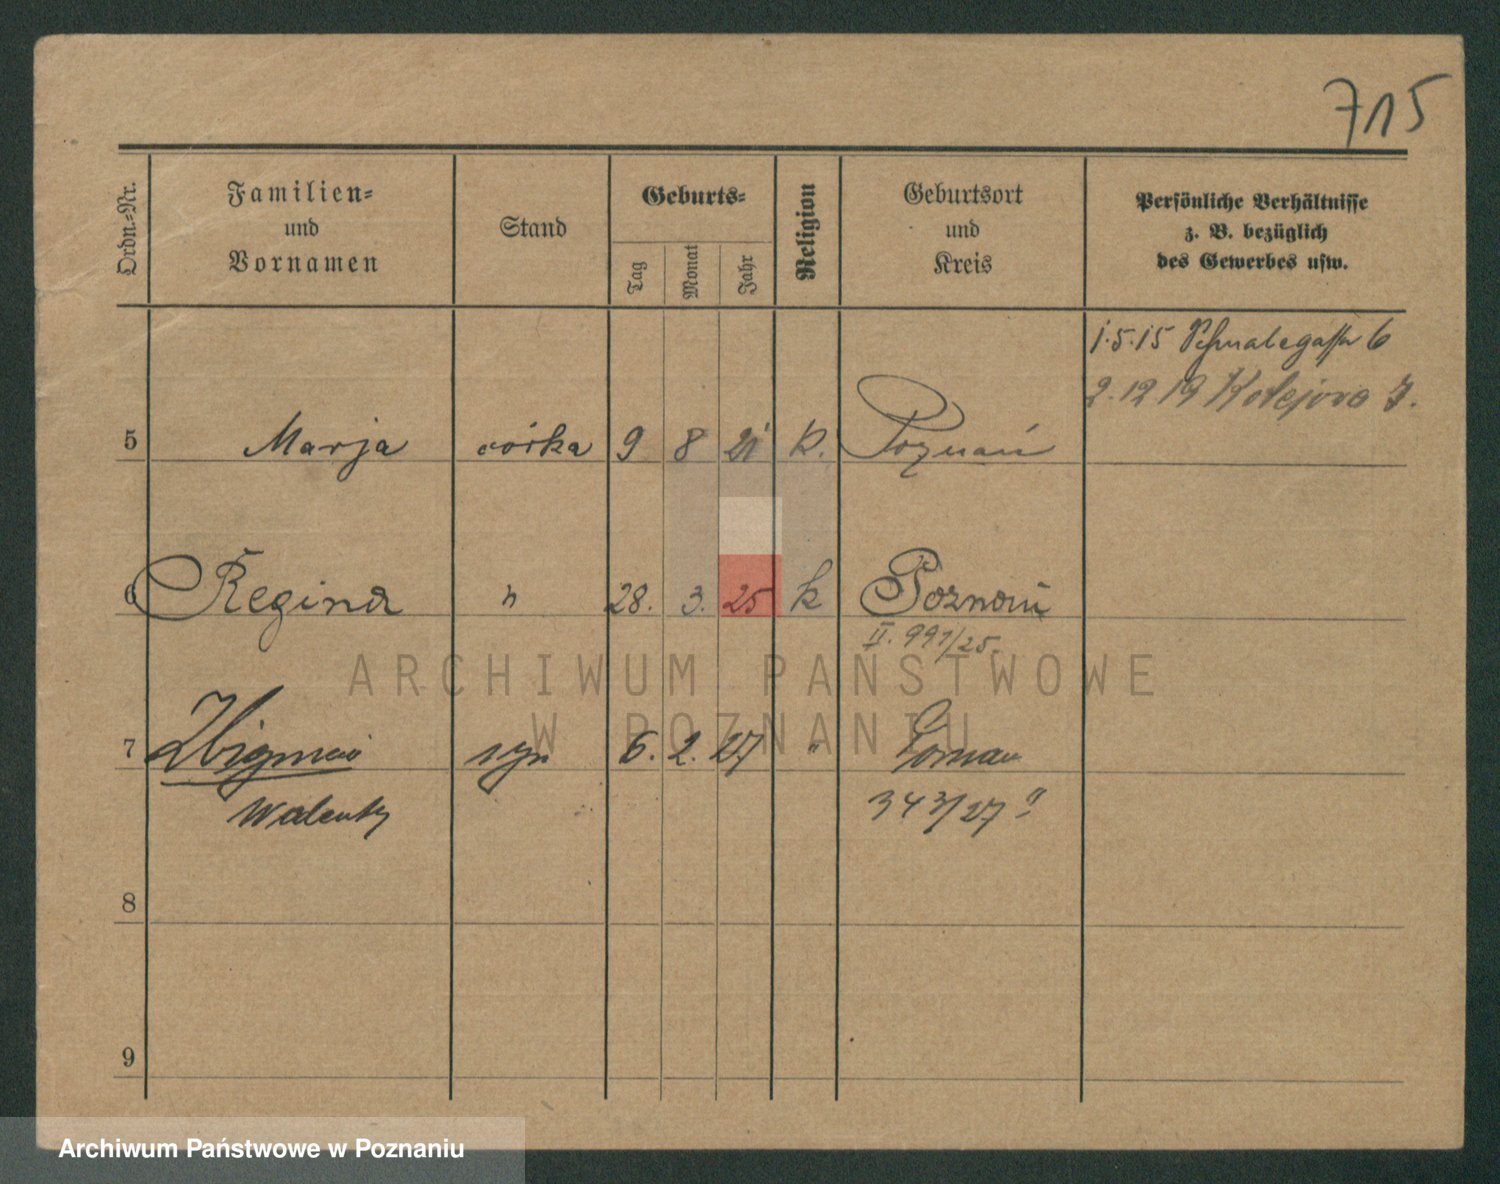 715
Ordn.=Nr.
Familien=
und
Vornamen
Stand
Geburts=
Tag
Monat
Jahr
Religion
Geburtsort
und
Kreis
Persönliche Verhältnisse
z. B. bezüglich
des Gewerbes usw.
1.5.15 6
2.12 19
5 Marja córka 9 8 21 k. Poznań
6 Regina " 28. 3. 25 k Poznań
II. 991/25.
ARCHIWUM PAŃSTWOWE
W POZNANIU
7 syn 6. 2. 27 "
Walenty 343/27
8
9
Archiwum Państwowe w Poznaniu